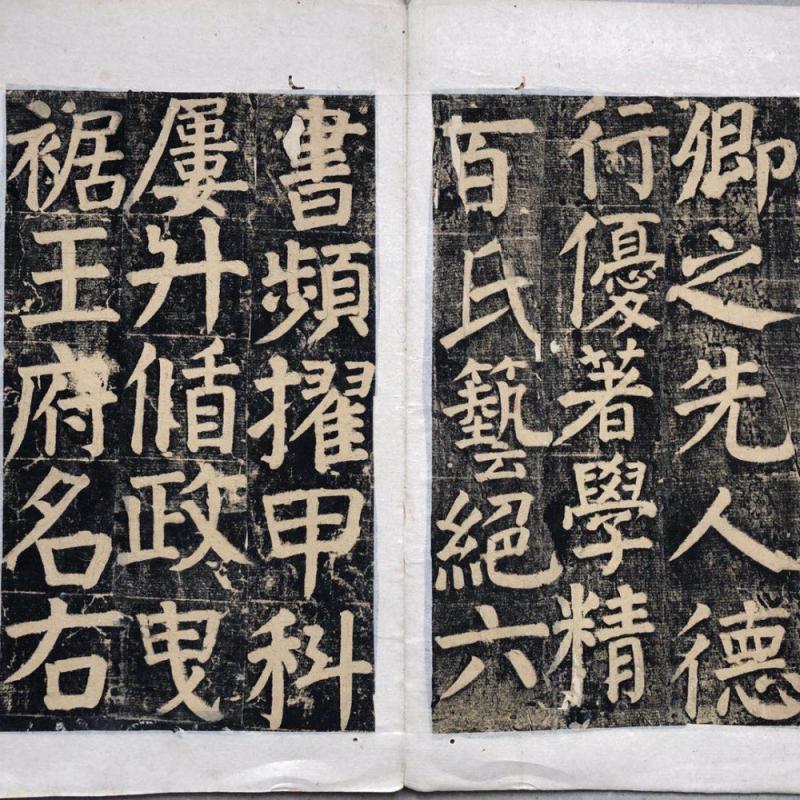 卿之先人德
行優著學精
百氏藝絕六
書頻擢甲科
屢升循政曳
裾王府名右